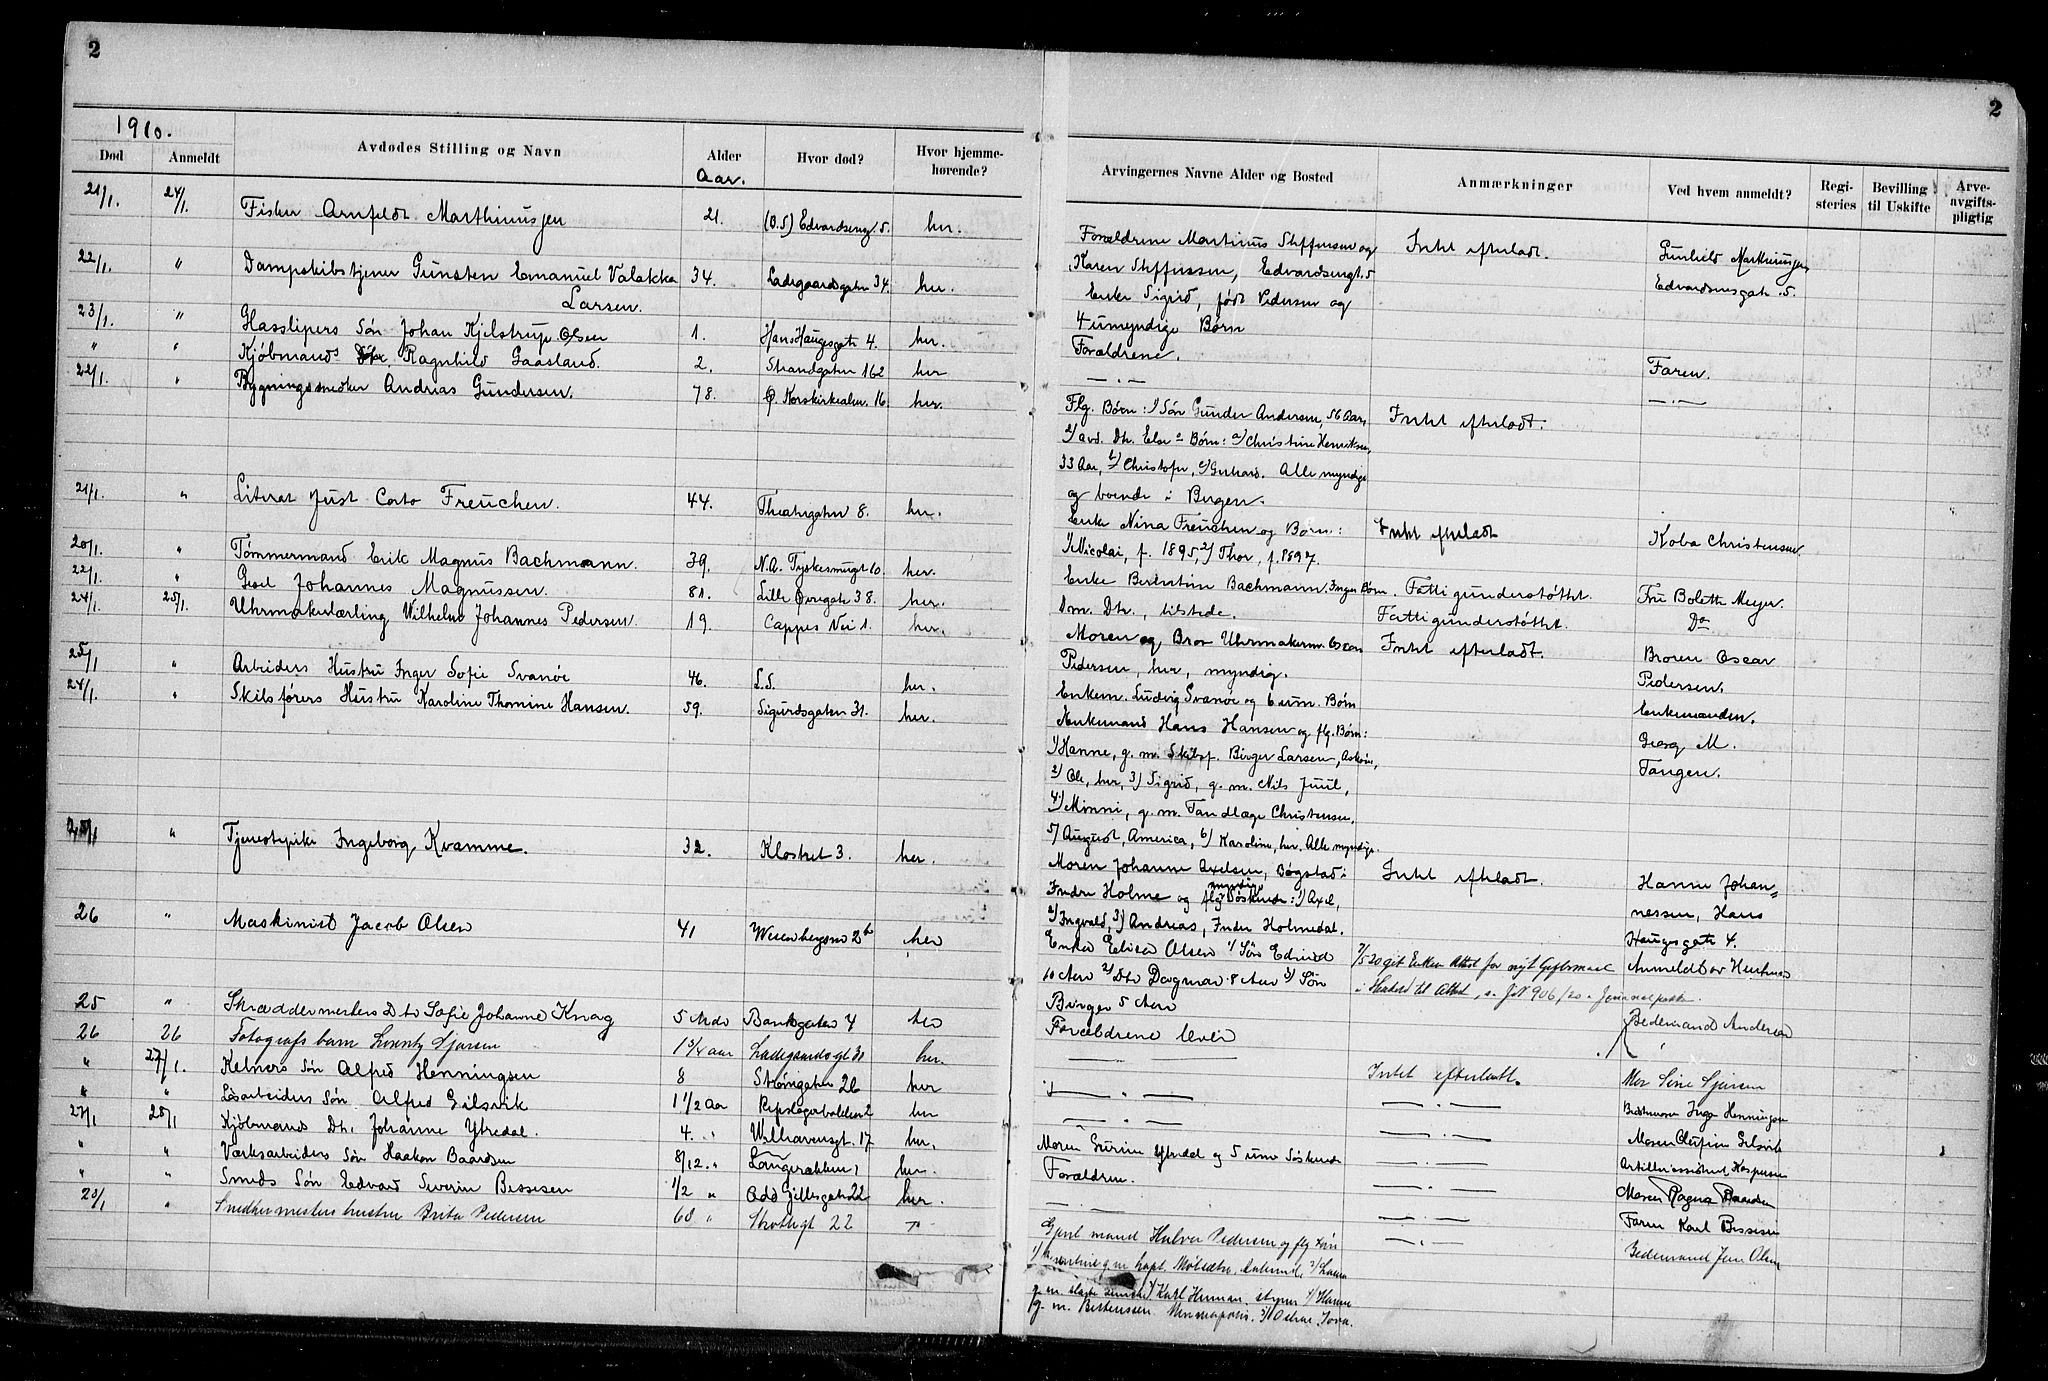 2
1910.
Død Anmeldt Avdødes Stilling og Navn Alder Aar. Hvor død? Hvor hjemme-hørende?
21/1. 24/1. Fisker Arnfeldt Marthinussen 21. (O.S) Edvardseng. 5. her.
22/1. " Dampskibstjener Gunsten Emanuel Valakka 34. Ladegaardsgaten 34. her.
Larsen.
23/1. " Glasslipers Søn Johan Kjelstrup Olsen 1. Hans Haugesgate 4. her.
" " Kjøbmands Ragnhild Gaasland. 2. Strandgaten 162 her
22/1. " Bygningssnedker Andreas Gundersen. 78. Ø. Korskirkealm. 16. her.
21/1. " Literat Just Corto Freuchen. 44. Theatergaten 8. her.
20/1. " Tømmermand Erik Magnus Bachmann. 39. N.A. Tyskesmugt 10. her.
22/1. " Johannes Magnussen. 81. Lille Øvregate 38. her.
24/1. 25/1. Uhrmakerlærling Wilhelm Johannes Pedersen. 19. Cappes Vei 1. her.
25/1 " Arbeiders Hustru Inger Sofie Svanøe 46. L.S. her.
24/1. " Skibsførers Hustru Karoline Thomine Hansen. 59. Sigurdsgaten 31. her.
" Tjenestepike Ingeborg Kvamme. 32. Klostret 3. her.
26 " Maskinist Jacob Olsen 41 her
25 " Skræddermesters Dtr Sofie Johanne Knag 5 Mdr Bankgaten 4 her
26 26 Fotografs barn Sjursen 1 3/4 aar Ladegaardsgt 31 her.
" 27/1. Kelners Søn Alfred Henningsen 8 Strømgaten 26 her
" " Løsarbeiders Søn Alfred Gilsvik 1 1/2 Aar Repslagerbakken 2 her
27/1 28/1 Kjøbmands Dtr. Johanne Ytredal. 4. " Welhavensgt. 17 her.
" " Værksarbeiders Søn Haakon Baardsen 8/12. " Langerækken 1 her.
" " Smeds Søn Edvard Severin Bessesen 1/2 " Odd Gillesgaten 22 her.
28/1 " Snedkermesters hustru Brita Pedersen 60 " Skottegt 22 "
2
Arvingernes Navne Alder og Bosted Anmærkninger Ved hvem anmeldt? Regi-steries Bevilling til Uskifte Arve-avgifts-pligtig
Forældrene Martinus Steffensen og Intet efterladt. Gunhild Marthinussen
Karen Steffensen, Edvardsengt. 5 Edvardsensgate 5.
Enke Sigrid, født Pedersen og
4 umyndige Børn
Forældrene. Faren.
— " — — " —
Flg. Børn: 1) Søn Gunder Andersen, 56 Aar, Intet efterladt.
2) avd. Dtr. Else's Børn: a) Christine Henriksen,
33 Aar, b) Christofer, c) Gerhard. Alle myndige
og boende i Bergen.
Enke Nina Freuchen og Børn: Intet efterladt Koba Christensen
1) Nicolai, f. 1895, 2) Thor, f. 1897.
Enke Berentine Bachmann. Ingen Børn. Fattigunderstøttet. Fru Bolette Meyer.
1 m. Dtr., tilstede. Fattigunderstøttet. Do
Moren og Bror Uhrmakerm. Oscar Intet efterladt. Broren Oscar
Pedersen, her, myndig. Pedersen.
Enkem. Ludvig Svanøe og 6 um. Børn Enkemanden.
Enkemand Hans Hansen og flg. Børn: Georg M.
1) Hanne, g. m. Skibsf. Birger Larsen, Askøen, Tangen.
2) Ole, her, 3) Sigrid, g. m. Nils Juul,
4) Minni, g. m. Tandlæge Christensen,
5) August, America, 6) Karoline, her. Alle myndige.
Moren Johanne Axelsen, Bøgstad i Intet efterladt. Hanne Johan=
Indre Holme og flg. myndige Søskende: 1) Axel, nessen, Hans
2) Ingvald, 3) Andreas, Indre Holmedal. Haugesgate 4.
Enke Elisa Olsen 1) Søn Edvind 7/5 20 git Enken Attest for nyt Giftermaal Anmeldt av Hustruen
10 Aar 2) Dtr Dagmar 8 Aar 3) Søn i Henhold til Attest, s. J.N 906/20 i Journalpakke.
Birger 5 Aar
Forældrene lever Bedemand Andersen
— — — — "
— " — Intet efterladt. Mor Sine Sjursen
— " — — " — Bedstemoren Inga Henningsen
Moren Gurine Ytredal og 5 um Søskende — " — Moren Olufine Gilsvik
Forældren. — " — Artillerissersjent Kaspersen
— " — — " — Moren Ragna Baardsen
Gjenl mand Halvor Pedersen og flg børn — " — Faren Karl Bessesen
1) g. m. kapt. Mølsæter, 2) Laura Bedemand Jens Olsen
g. m. 3) Karl Herman, styrm 4) Hanna
g. m. Berentssen Minneapolis. 5) Oskar, Iowa.